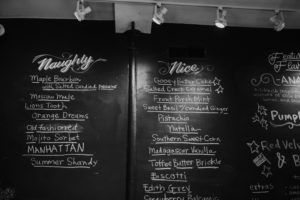 Naughty
Maple Bourbon
with Salted candied pecans
Moscow Mule
Lions Tooth
Orange Dreams
Old fashioned
Mojito Sorbet
MANHATTAN
Summer Shandy
Nice
Gooey Butter Cake
Salted Crack Caramel
Front Porch Mint
Sweet Basil w/ candied Ginger
Pistachio
Nutella
Southern Sweet Corn
Madagascar Vanilla
Toffee Butter Brickle
Biscotti
Earth Grey
Pumpk
Red Velv
extras